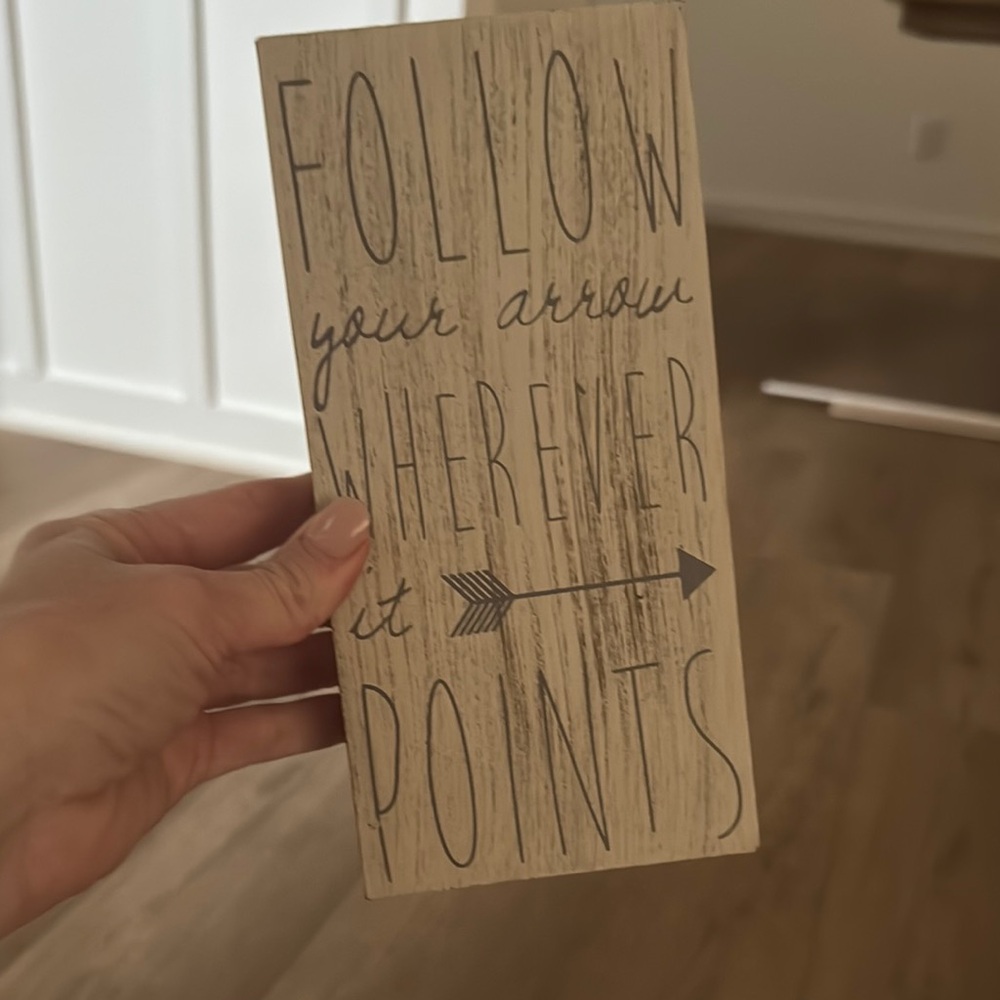 FOLLOW
your arrow
WHEREVER
it
POINTS